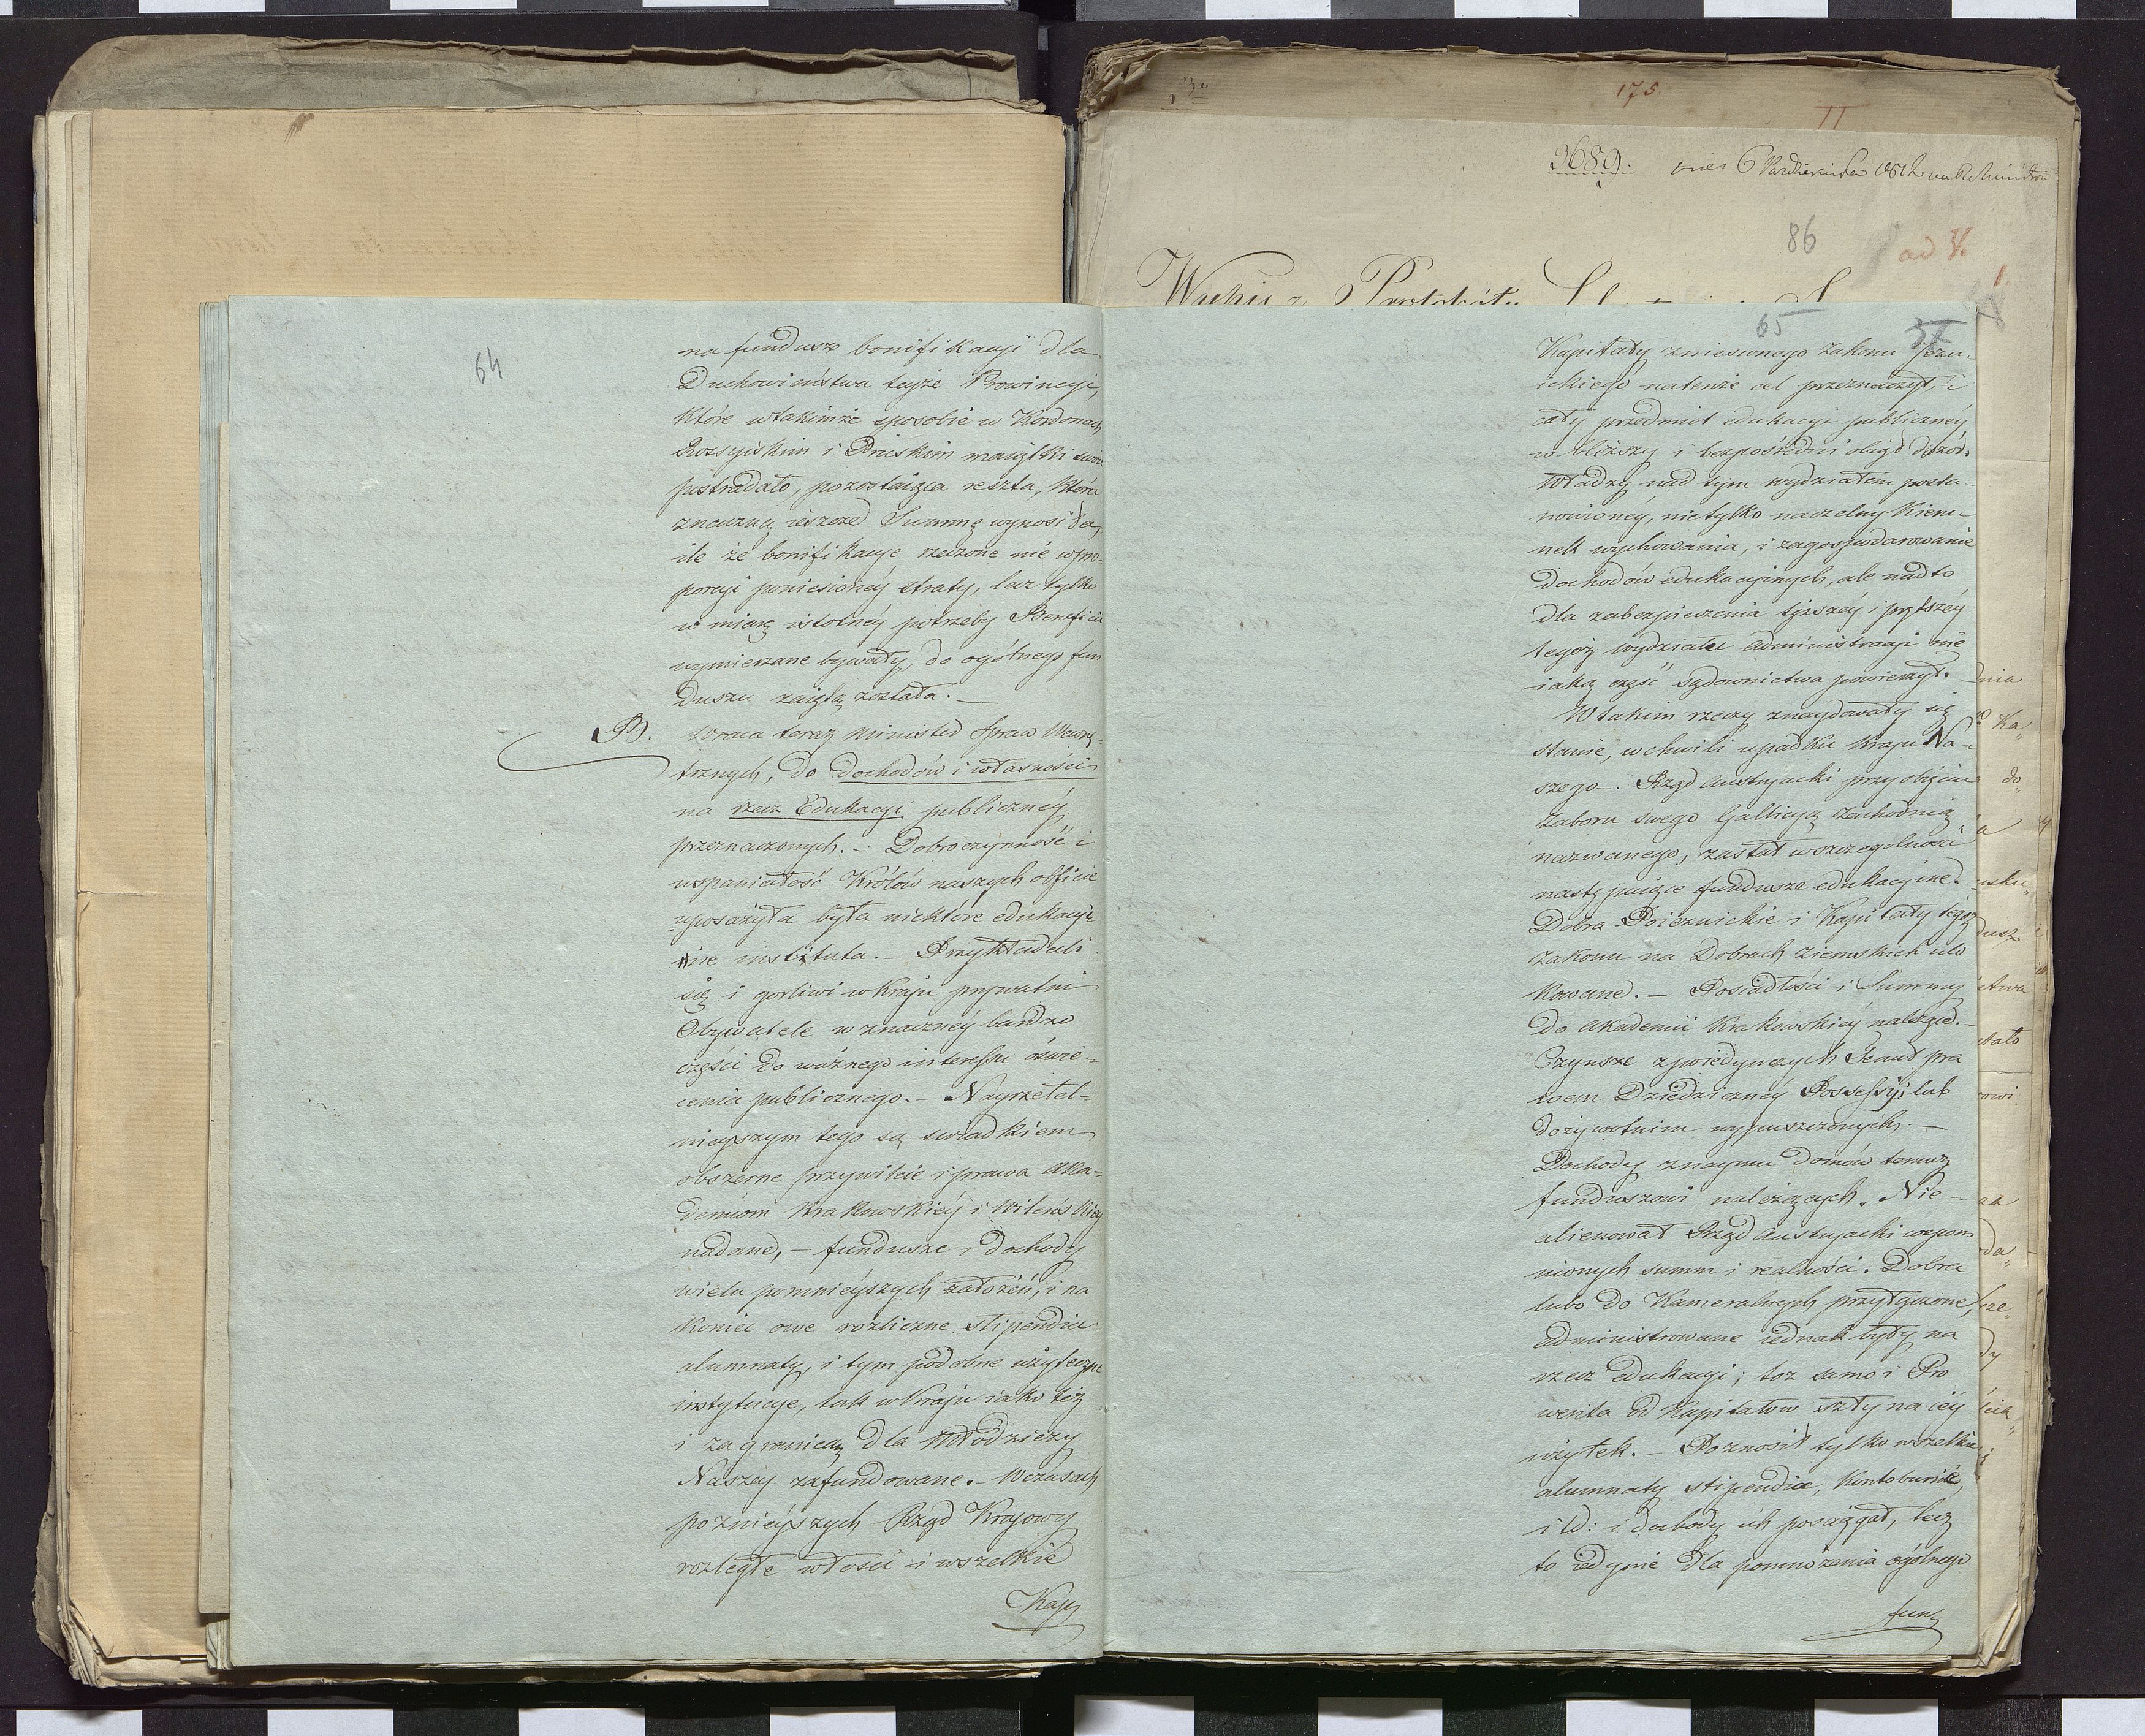 175
II
3689. dnia 6 Października 1812
86
ad V.
64
na fundusz bonifikacyi dla
Duchowieństwa teyże Prowincyi,
które wtakimże sposobie w Kordonach
Rossyiskim i Pruskim maiątki swoie
postradało, pozostaiąca reszta, która
znaczną ieszcze Summę wynosiła,
ile że bonifikacye rzeczone nie wpro-
porcyi poniesionéy straty, lecz tylko
w miarę istotnéy potrzeby Beneficii
wymierzane bywały, do ogólnego fun
duszu zaiętą została. —
B. wraca teraz Minister Spraw Wewnę-
trznych, do dochodów i własności
na rzecz Edukacyi publicznéy
przeznaczonych. — Dobroczynność i
wspaniałość Królów naszych obficie
uposażyła była niektóre edukacyi
ne instituta. — Przykładali
się i gorliwi w kraju prywatni
Obywatele w znacznéy bardzo
części do ważnego interessu oświe-
cenia publicznego. — Nayrzetel-
nieyszym tego są świadkiem
obszerne przywileie i prawa Aka-
demiom Krakowskiéy i Wileńskiey
nadane, — fundusze i dochody
wielu pomnieyszych założeń, i na
koniec owe rozliczne stipendia
alumnaty, i tym podobne użyteczne
instytucye, tak wkraju iako też
i zagranicą dla Młodzieży
Naszey zafundowane. — Wczasach
poznieyszych Rząd Krajowy
rozległe włości i wszelkie
Kapi
65
Kapitały zniesionego zakonu Jezu-
ickiego natenże cel przeznaczył, i
cały przedmiot edukacyi publicznéy
w bliższy i bezpośredni wziął dozór.
Władzy nad tym wydziałem posta-
nowionéy, nietylko naczelny Kieru-
nek wychowania, i zagospodarowanie
dochodów edukacyinych, ale nadto
dla zabezpieczenia tęższéy i prętszéy
tegoż wydziału administracyi nie
iaką część sądownictwa powierzył.
W takim rzeczy znaydowały się
stanie, w chwili upadku kraju Na-
szego. — Rząd Austryacki przy obięciu
zaboru swego Gallicyą Zachodnią
nazwanego, zastał wszczególności
następuiące fundusze edukacyine.
Dobra Poiezuickie i Kapitały tegoż
zakonu na Dobrach ziemskich ulo
kowane. — Posiadłości i Summy
do Akademii Krakowskiéy należące. —
Czynsze z poiedynczych Realit pra
wem Dziedzicznéy Possessyi, lub
dożywotnim wypuszczonych. —
Dochody z naymu domów temuż
funduszowi należących. Nie —
alienował Rząd Austryacki wspom
nionych summ i realności. Dobra
lubo do Kameralnych przyłączone,
administrowane iednak były na
rzecz edukacyi; toż samo i Pro
wenta od Kapitałów szły na iéy
użytek. — Poznosił tylko wszelkie
alumnaty stipendia, Kontubernie,
itd: i dochody ich posaggał, lecz
to iedynie dla pomnożenia ogólnego
fun